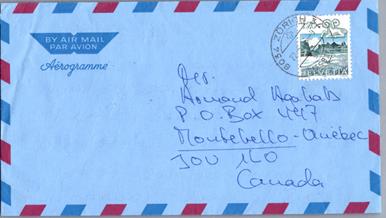 BY AIR MAIL
PAR AVION
Aérogramme
8034 ZÜRICH
HELVETIA
P.O. Box 447
Montebello - Québec
JOV 1LO
Canada